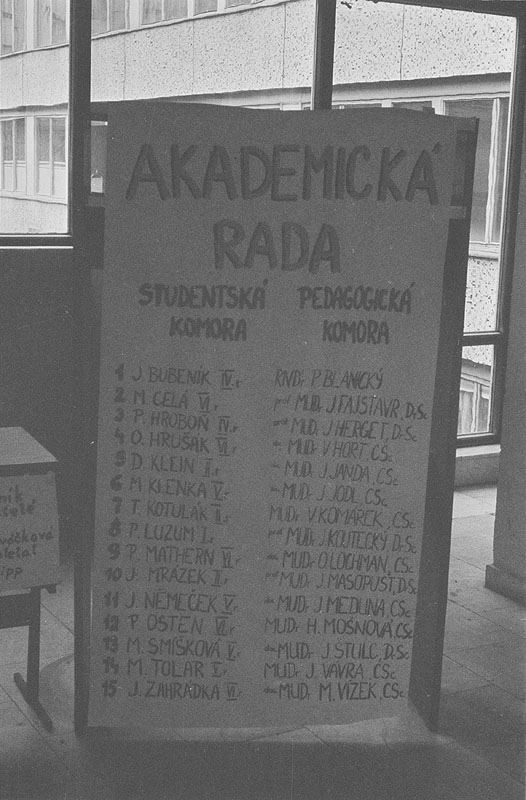 AKADEMICKÁ
RADA
STUDENTSKÁ KOMORA
PEDAGOGICKÁ KOMORA
1 J. BUBENÍK IV.r
2 M. CELÁ VI.r
3 P. HROBOŇ IV.r
4 O. HRUŠÁK VI.r
5 D. KLEIN II.r
6 M. KLENKA V.r
7 T. KOTULÁK II.r
8 P. LUZUM I.r
9 P. MATHERN VI.r
10 J. MRÁZEK II.r
11 J. NĚMEČEK V.r
12 P. OSTEN VI.r
13 M. SMÍŠKOVÁ V.r
14 M. TOLAR V.r
15 J. ZAHRÁDKA VI.r
RNDr P. BLANICKÝ
prof MUDr J. FAJSTAVR, DrSc
MUDr J. HERGET, DrSc
MUDr V. HORT CSc
MUDr J. JANDA, CSc
MUDr J. JODL, CSc
MUDr V. KOMÁREK, CSc
MUDr J. KOUTECKÝ, DrSc
MUDr O. LOCHMAN, CSc
prof MUDr J. MASOPUST, DrSc
MUDr J. MEDUNA, CSc
MUDr H. MOŠNOVÁ CSc
MUDr J. ŠTULC, DrSc
MUDr J. VÁVRA, CSc
MUDr M. VÍZEK, CSc